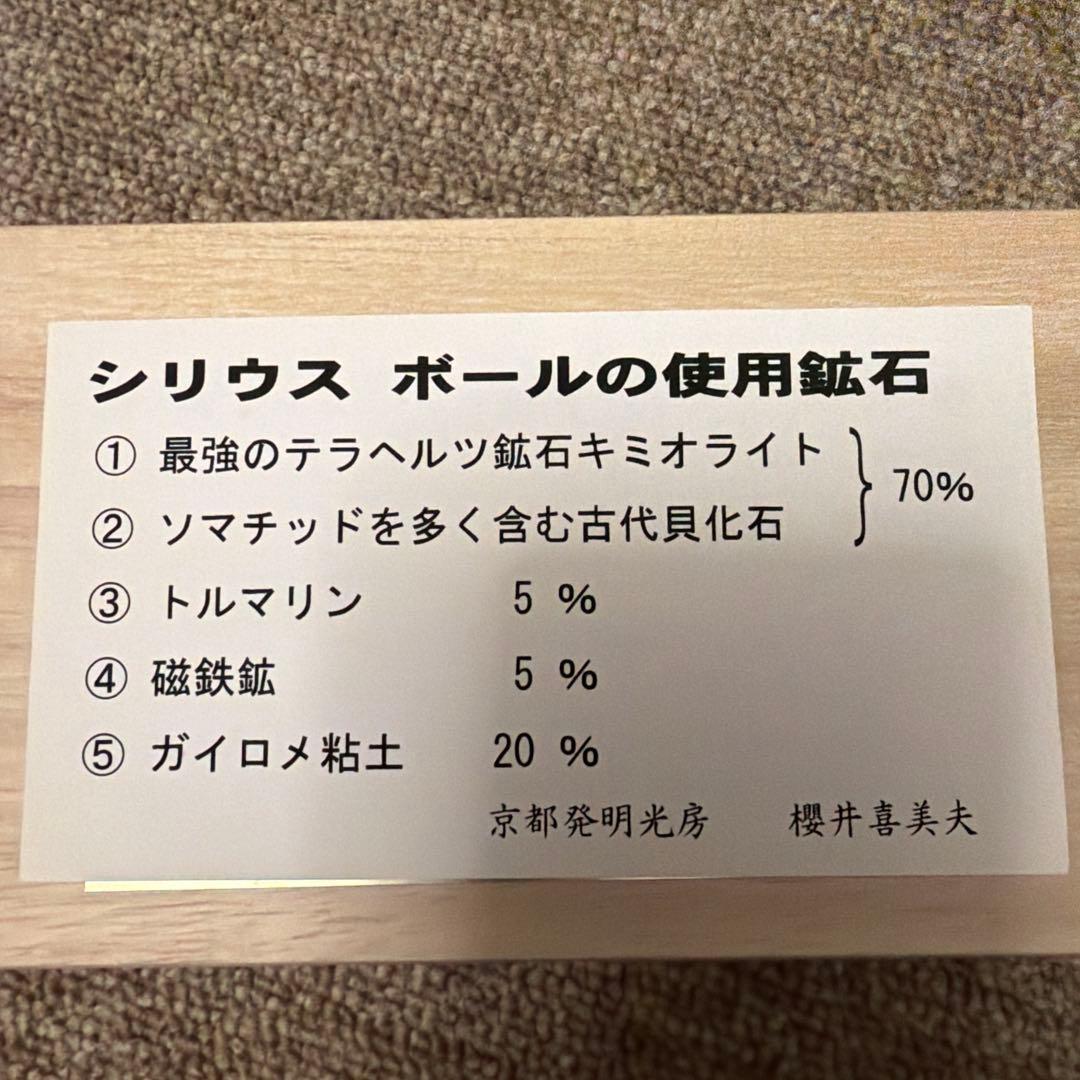 シリウス ボールの使用鉱石
① 最強のテラヘルツ鉱石キミオライト
② ソマチッドを多く含む古代貝化石
70%
③ トルマリン 5 %
④ 磁鉄鉱 5 %
⑤ ガイロメ粘土 20 %
京都発明光房 櫻井喜美夫